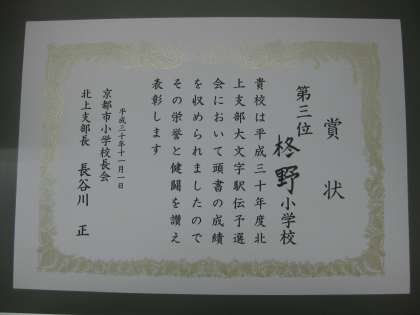 賞状
第三位
柊野小学校
貴校は平成三十年度北
上支部大文字駅伝予選
会において頭書の成績
を収められましたので
その栄誉と健闘を讃え
表彰します
平成三十年十一月一日
京都市小学校長会
北上支部長 長谷川 正